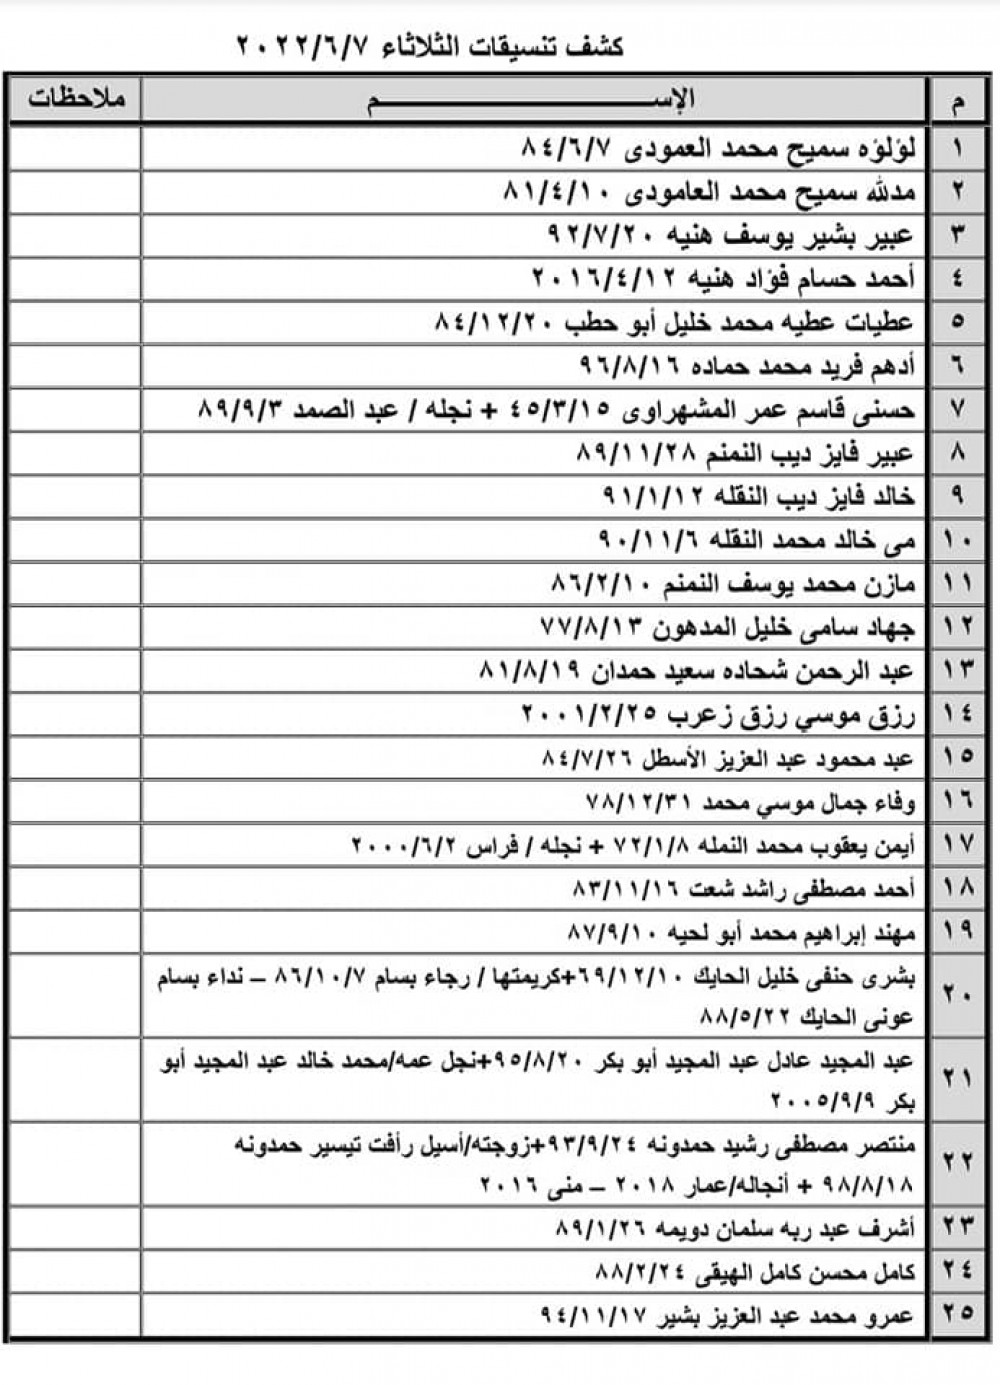 كشف تنسيقات الثلاثاء ٢٠٢٢/٦/٧
م الإســـــــــــم ملاحظات
١ لؤلؤه سميح محمد العمودى ٨٤/٦/٧
٢ مدلله سميح محمد العامودى ٨١/٤/١٠
٣ عبير بشير يوسف هنيه ٩٢/٧/٢٠
٤ أحمد حسام فؤاد هنيه ٢٠١٦/٤/١٢
٥ عطيات عطيه محمد خليل أبو حطب ٨٤/١٢/٢٠
٦ أدهم فريد محمد حماده ٩٦/٨/١٦
٧ حسنى قاسم عمر المشهراوى ٤٥/٣/١٥ + نجله / عبد الصمد ٨٩/٩/٣
٨ عبير فايز ديب النمنم ٨٩/١١/٢٨
٩ خالد فايز ديب النقله ٩١/١/١٢
١٠ مى خالد محمد النقله ٩٠/١١/٦
١١ مازن محمد يوسف النمنم ٨٦/٢/١٠
١٢ جهاد سامى خليل المدهون ٧٧/٨/١٣
١٣ عبد الرحمن شحاده سعيد حمدان ٨١/٨/١٩
١٤ رزق موسي رزق زعرب ٢٠٠١/٢/٢٥
١٥ عبد محمود عبد العزيز الأسطل ٨٤/٧/٢٦
١٦ وفاء جمال موسي محمد ٧٨/١٢/٣١
١٧ أيمن يعقوب محمد النمله ٧٢/١/٨ + نجله / فراس ٢٠٠٠/٦/٢
١٨ أحمد مصطفى راشد شعت ٨٣/١١/١٦
١٩ مهند إبراهيم محمد أبو لحيه ٨٧/٩/١٠
٢٠ بشرى حنفى خليل الحايك ٦٩/١٢/١٠+كريمتها / رجاء بسام ٨٦/١٠/٧ – نداء بسام
عونى الحايك ٨٨/٥/٢٢
٢١ عبد المجيد عادل عبد المجيد أبو بكر ٩٥/٨/٢٠+نجل عمه/محمد خالد عبد المجيد أبو
بكر ٢٠٠٥/٩/٩
٢٢ منتصر مصطفى رشيد حمدونه ٩٣/٩/٢٤+زوجته/أسيل رأفت تيسير حمدونه
٩٨/٨/١٨ + أنجاله/عمار ٢٠١٨ – منى ٢٠١٦
٢٣ أشرف عبد ربه سلمان دويمه ٨٩/١/٢٦
٢٤ كامل محسن كامل الهيقى ٨٨/٢/٢٤
٢٥ عمرو محمد عبد العزيز بشير ٩٤/١١/١٧